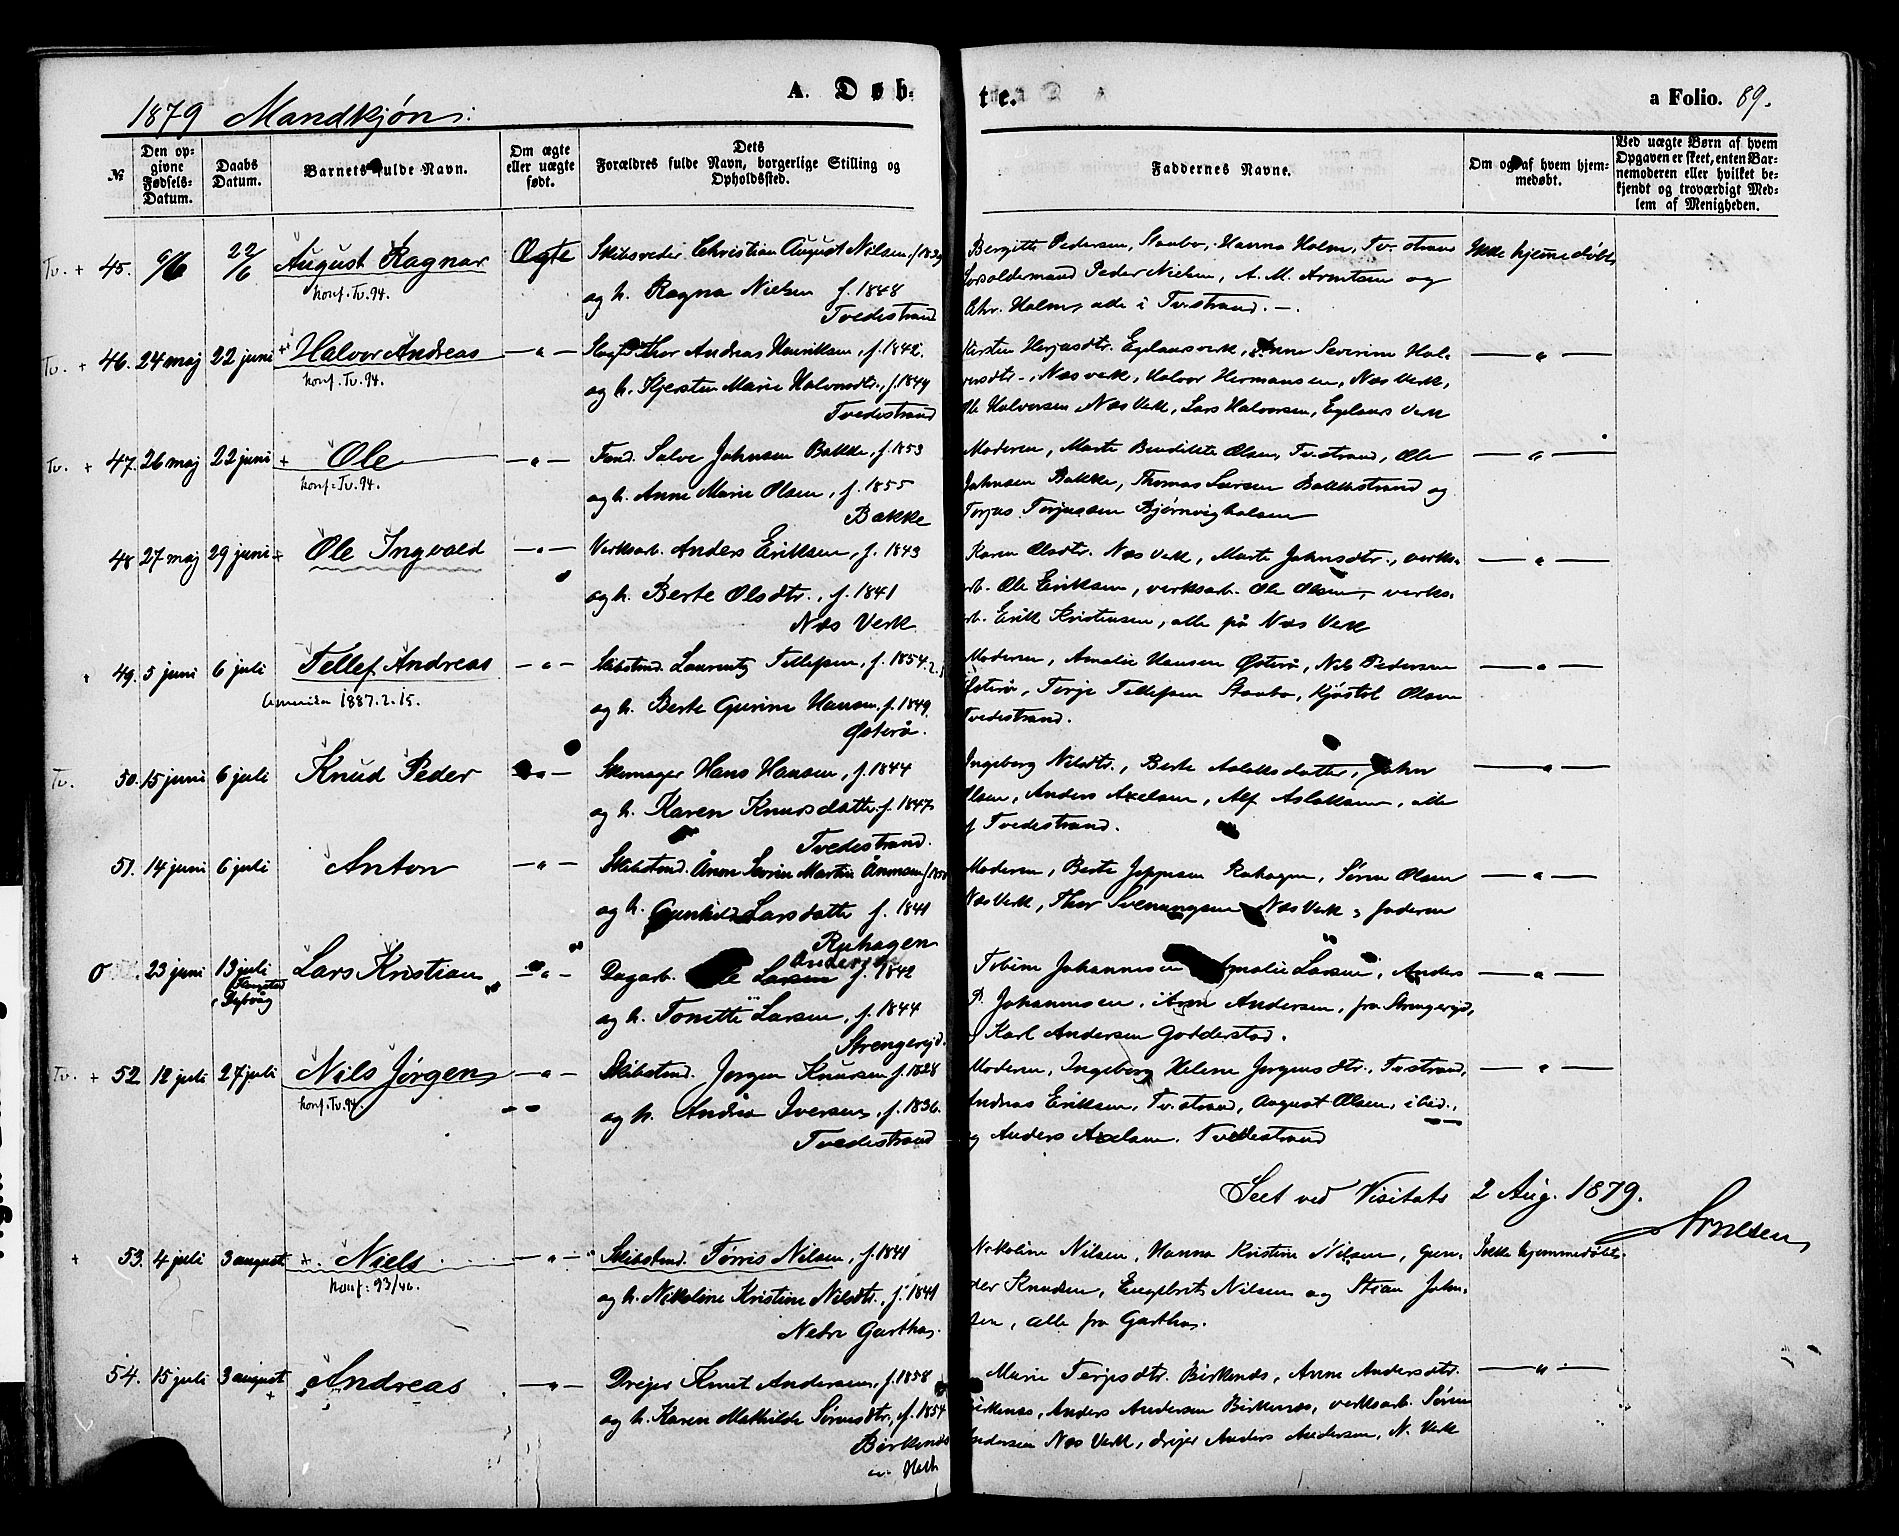 A. Døb-
te.
a Folio. 89.
1879 Mandkjøn:
№
Den op-
givne
Fødsels-
Datum.
Daabs
Datum.
Barnets fulde Navn.
Om ægte
eller uægte
født.
Dets
Forældres fulde Navn, borgerlige Stilling og
Opholdssted.
Faddernes Navne.
Om og af hvem hjem-
medøbt.
Ved uægte Børn af hvem
Opgaven er skeet, enten Bar-
nemoderen eller hvilket be-
kjendt og troværdigt Med-
lem af Menigheden.
Tv. + 45. 6/6 22/6 August Ragnar Ægte Christian August Nilsen f. 1839
konf. Tv. 94.
og h. Ragna Nielsen f. 1848
Tvedestrand
Pedersen, Staubo, Hanna Holm, Tv. strand
Peder Nielsen, A. M. Arntsen og
Chr. Holm, alle i Tv.strand. -
Ikke hjemmedøbt
Tv. + 46. 24 maj 22 juni + Halvor Andreas — " — Thor Andreas Henriksen, f. 1842.
konf. Tv. 94.
og h. Kjersten Marie Halvorsdtr., f. 1849
Tvedestrand
Kirsten Egelands verk, Anne Severine Hal-
vorsdtr., Næs verk, Halvor Hermansen, Næs Verk,
Ole Halvorsen Næs Verk, Lars Halvorsen, Egelands Verk
— " —
Tv. + 47. 26 maj 22 juni + Ole — " — Salve Johnsen Bakke, f. 1853
konf. Tv. 94.
og h. Anne Marie Olsen, f. 1855
Bakke
Moderen, Marte Olsen, Tv.strand, Ole
Johnsen Bakke, Thomas Larsen Bakkestrand og
Torjus Torjussen Bjørnvigholmen
— " —
48 27 maj 29 juni + Ole Ingvald — " — Verksarb. Anders Eriksen, f. 1843
og h. Berte Olsdtr., f. 1841
Næs Verk
Karen Olsdtr. Næs Verk, Marte Johnsdtr., verks-
arb. Ole Eriksen, verksarb. Ole Olsen, verks-
arb. Erik Kristensen, alle på Næs Verk
— " —
+ 49. 5 juni 6 juli Tellef Andreas — " — Skibstmd. Laurentz Tellefsen, f. 1854.2.
1887.2.15.
og h. Berte Gurine Hansen, f. 1849.
Østerø.
Moderen, Amalie Hansen Østerø, Nils Pedersen
Østerø, Terje Tellefsen Staubo, Kjøstol Olsen
Tvedestrand.
— " —
Tv. 50. 15 juni 6 juli Knud Peder — " — Skomager Hans Hansen, f. 1844
og h. Karen Knudsdatter f. 1847.
Tvedestrand.
Ingeborg Nilsdtr., Berte Aslaksdatter, John
Olsen, Anders Axelsen, Alf Aslaksen, alle
af Tvedestrand.
— " —
51. 14 juni 6 juli Anton — " — Skibstmd. Ånon Martin Ånonsen
og h. Gunhild Larsdatter f. 1841
Ruhagen
Moderen, Berte Jeppesen Ruhagen, Søren Olsen
Næs Verk, Thor Svenungsen Næs Verk, Faderen
— " —
0 23 juni 13 juli Lars Kristian — " — Dagarb. Larsen f. 1842
Dybvåg
Andersen
og h. Tonette Larsen, f. 1844
Strengereid.
Tobine Johannesen Amalie Larsen, Anders
P. Johannesen, Arne Andersen, fra Strengereid,
Karl Andersen Godderstad.
— " —
Tv. + 52 12 juli 27 juli Nils Jørgen — " — Skibstmd. Jørgen Knudsen f. 1828
konf. Tv. 94.
og h. Andrea Iversen, f. 1836.
Tvedestrand
Moderen, Ingeborg Helene Jørgensdtr., Tv.strand,
Andreas Eriksen, Tv.strand, August Olsen, ibid.,
og Anders Axelsen. Tvedestrand
— " —
Seet ved Visitats 2 Aug. 1879.
Arnesen
+ 53. 4 juli 3 august + Niels — " — Skibstmd. Tørris Nilsen, f. 1841
konf: 93/46.
og h. Nikoline Kristine Nilsdtr., f. 1841
Nedre Gartha.
Nikoline Nilsen, Hanna Kristine Nilsen, Gun-
der Knudsen, Engebret Nilsen og Stian John-
sen, alle fra Gartha.
Ikke hjemmedøbt.
54. 15 juli 3 august + Andreas — " — Drejer Knut Andersen, f. 1858
og h. Karen Mathilde Sørensdtr., f. 1854
Birkenæs
Marie Terjesdtr. Birkenæs, Anne Andersdtr.
Birkenæs, Anders Andersen Birkenæs, verksarb. Søren
Andersen Næs Verk, drejer Anders Andersen, N. Verk
— " —